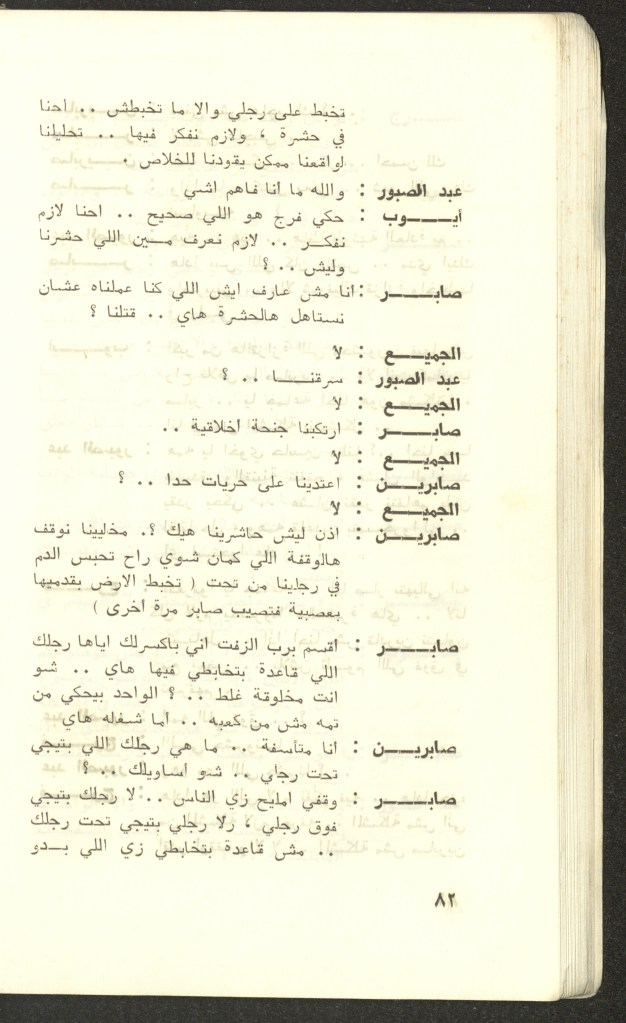 تخبط على رجلي والا ما تخبطش .. احنا
في حشرة ، ولازم نفكر فيها .. تحليلنا
لواقعنا ممكن يقودنا للخلاص .
عبد الصبور : والله ما انا فاهم اشي
أيـــوب : حكي فرج هو اللي صحيح .. احنا لازم
نفكـر .. لازم نعرف مـين اللي حشرنا
وليش .. ؟
صابـــر : أنا مش عارف ايش اللي كنا عملناه عشان
نستاهل هالحشرة هاي .. قتلنا ؟
الجميـــع : لا
عبد الصبور : سرقنـــا .. ؟
الجميـــع : لا
صابـــر : ارتكبنا جنحة اخلاقية ..
الجميـــع : لا
صابريـــن : اعتدينا على حريات حدا .. ؟
الجميـــع : لا
صابريـــن : اذن ليش حاشرينا هيك ؟. مخليينا نوقف
هالوقفة اللي كمان شوي راح تحبس الدم
في رجلينا من تحت ( تخبط الارض بقدميها
بعصبية فتصيب صابر مرة اخرى )
صابـــر : أقسم برب الزفت اني باكسرلك اياها رجلك
اللي قاعدة بتخابطي فيها هاي .. شو
انت مخلوقة غلط .. ؟ الواحد بيحكي من
تمه مش من كعبه .. أما شغله هاي
صابريـــن : أنا متأسفة .. ما هي رجلك اللي بتيجي
تحت رجلي .. شو أساويلك .. ؟
صابـــر : وقفي امليح زي الناس .. لا رجلك بتيجي
فوق رجلي ، ولا رجلي بتيجي تحت رجلك
.. مش قاعدة بتخابطي زي اللي بــدو
٨٢